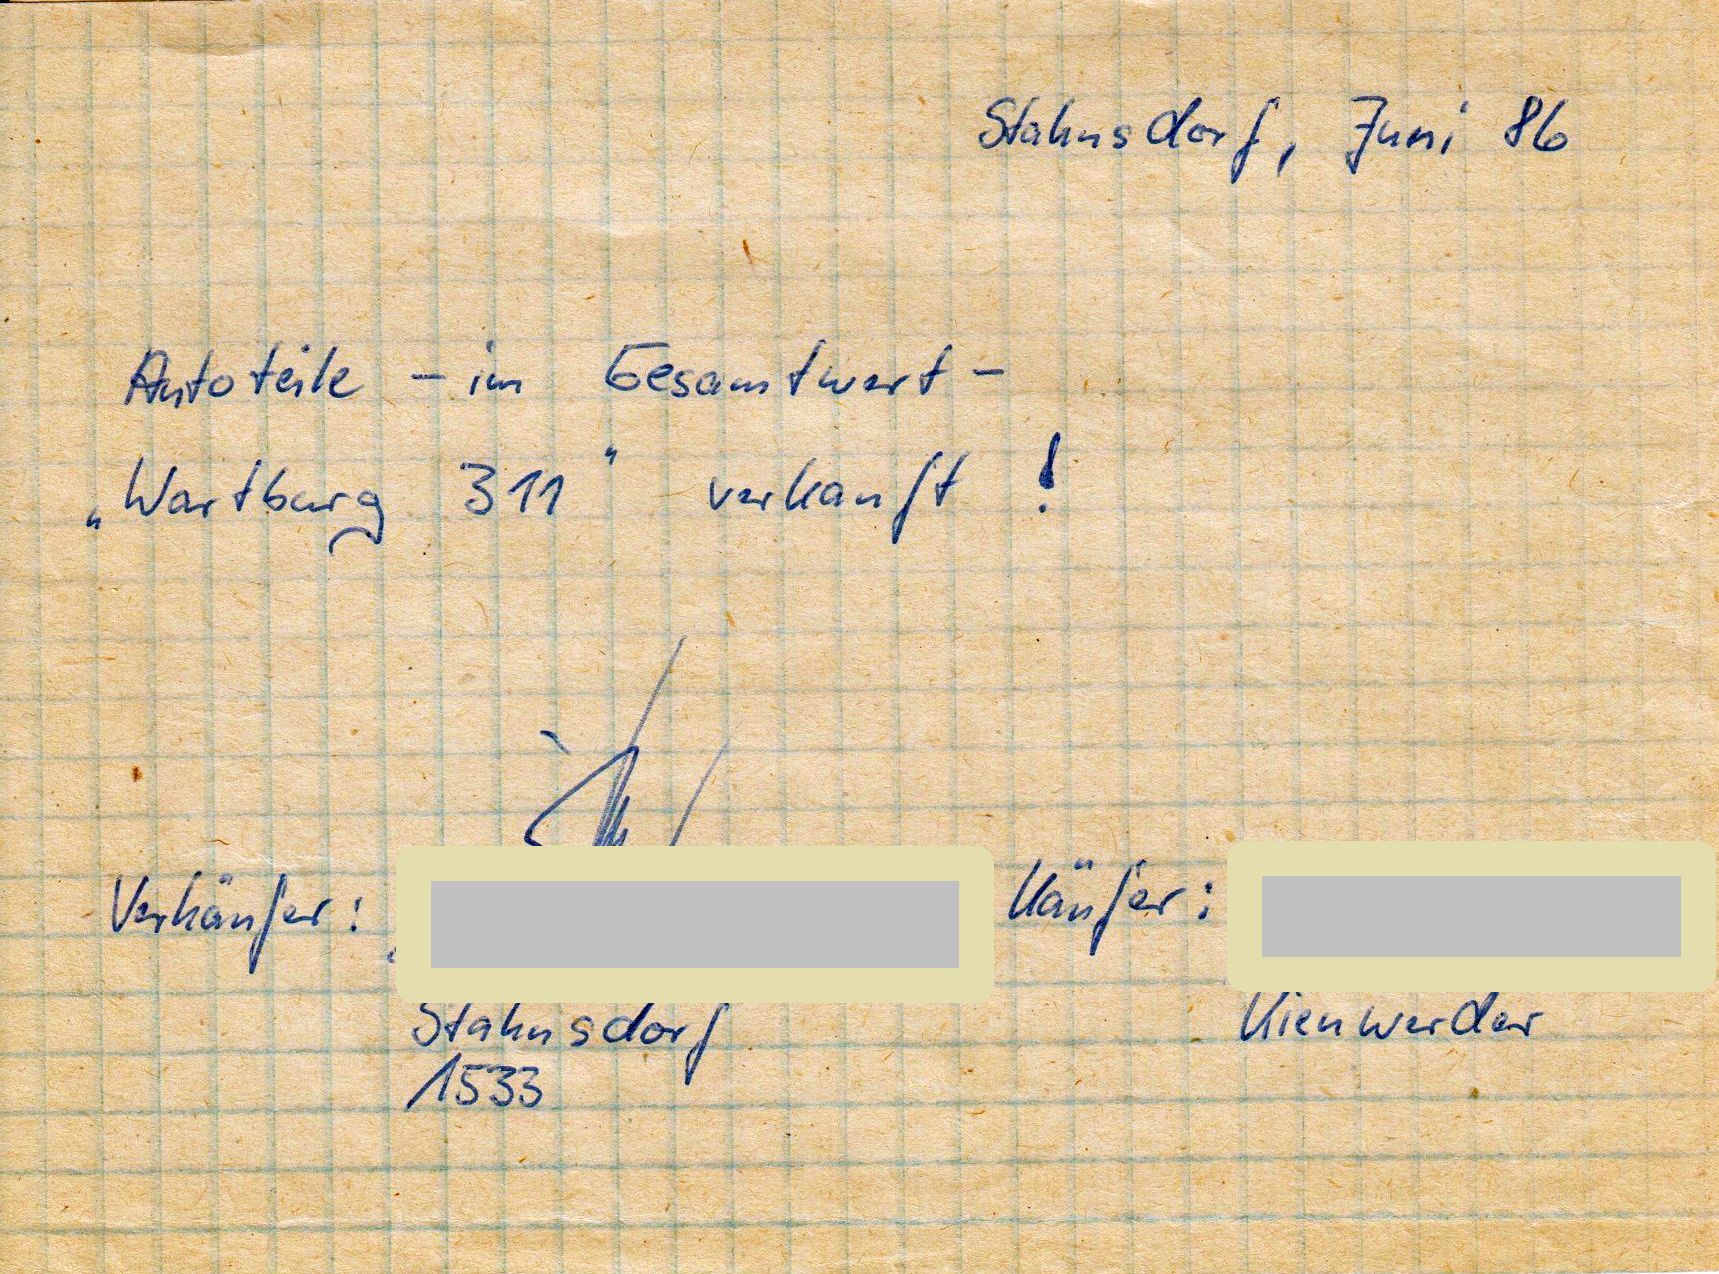 Stahnsdorf, Juni 86
Autoteile - im Gesamtwert -
„Wartburg 311" verkauft !
Verkäufer: Käufer:
Stahnsdorf Kienwerder
1533